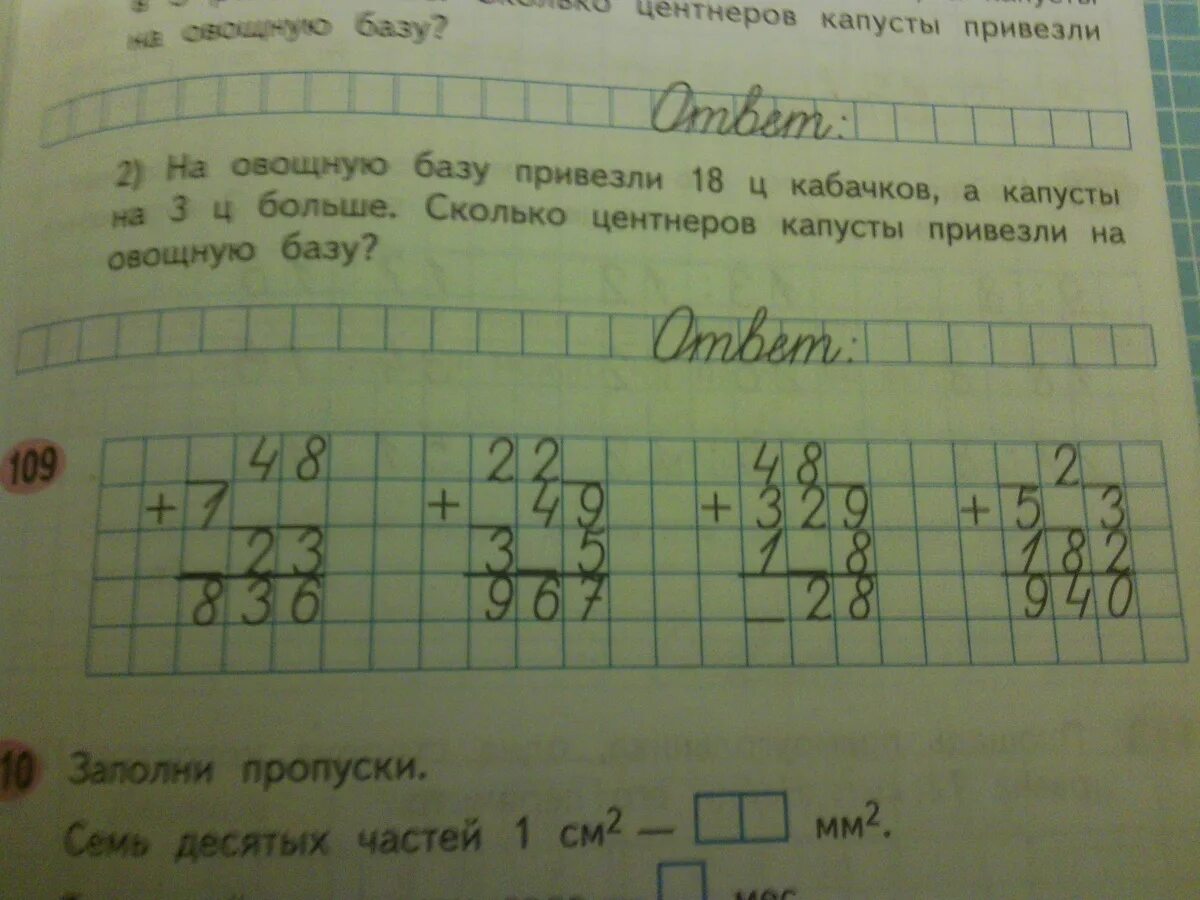 Сколько центнеров капусты привезли
на овощную базу?
Ответ:
2) На овощную базу привезли 18 ц кабачков, а капусты
на 3 ц больше. Сколько центнеров капусты привезли на
овощную базу?
Ответ:
109 _48 22_ 48_ _2_
+ 1__ + _49 + 329 + 5_3
_23 3_5 1_8 182
836 967 _28 940
10 Заполни пропуски.
Семь десятых частей 1 см² — мм².
мес.